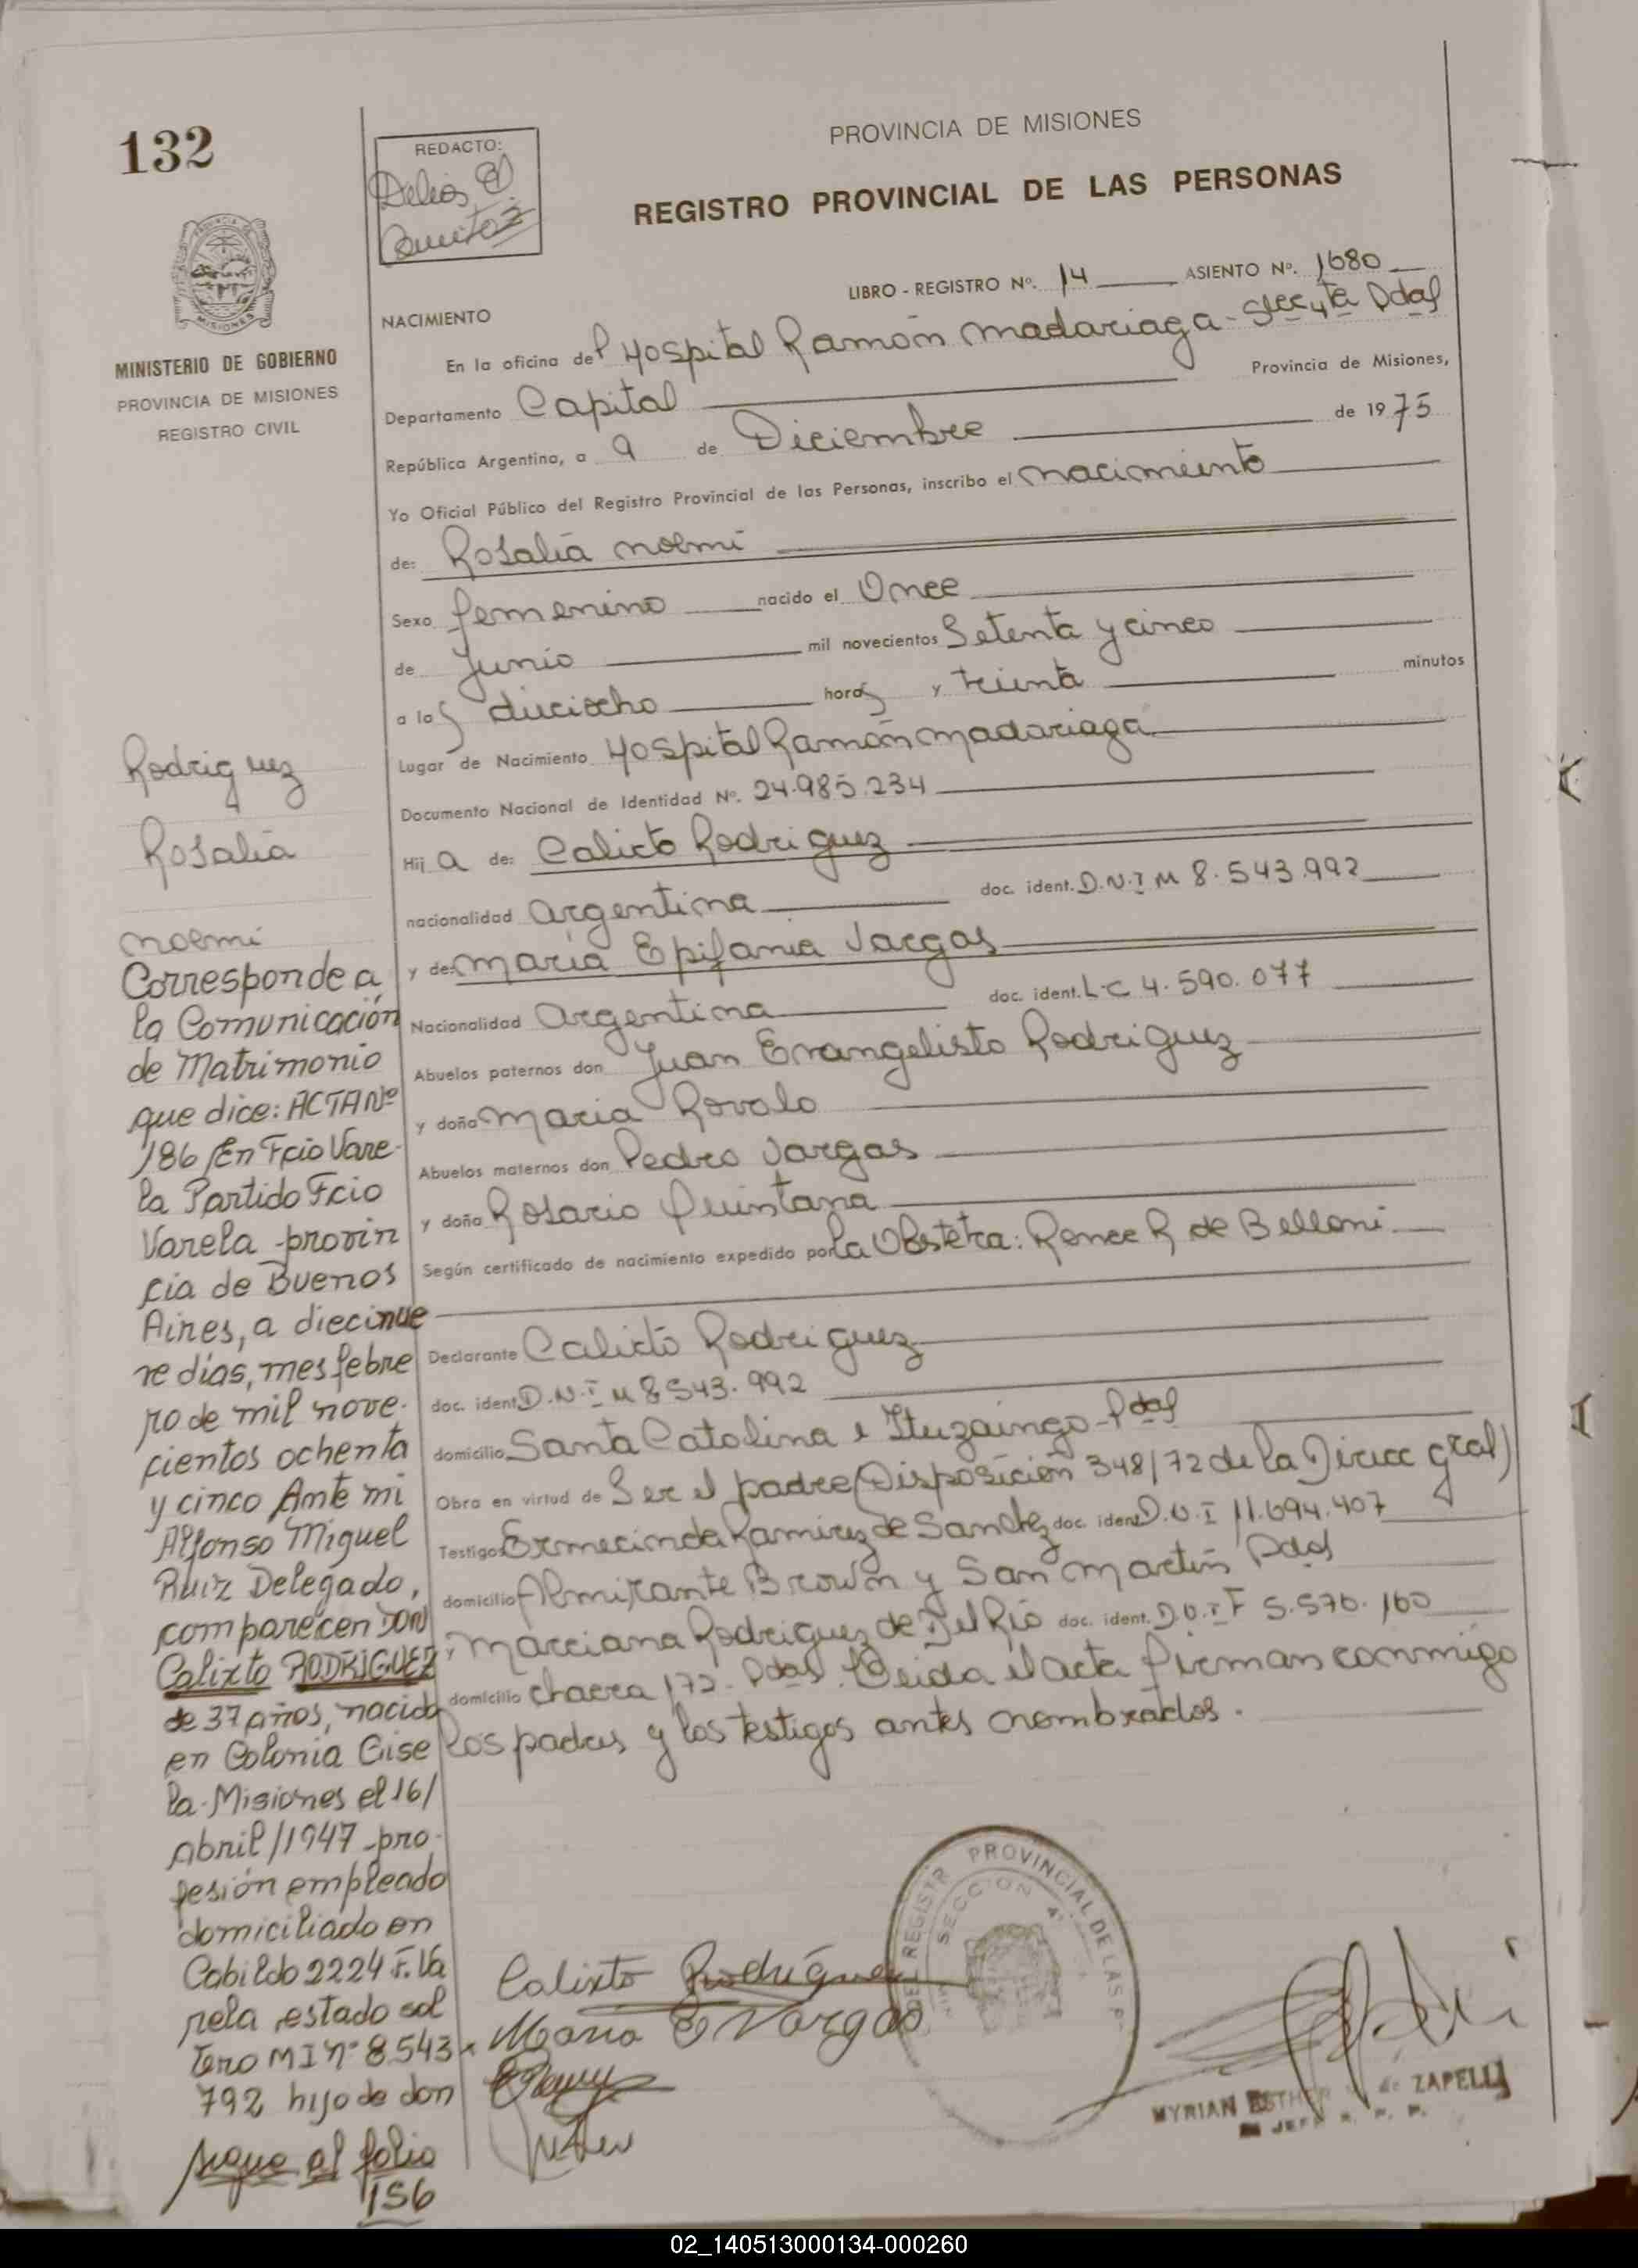 132
REDACTO:
Delios
PROVINCIA DE MISIONES
REGISTRO PROVINCIAL DE LAS PERSONAS
MINISTERIO DE GOBIERNO
PROVINCIA DE MISIONES
REGISTRO CIVIL
LIBRO - REGISTRO Nº. 14 ASIENTO Nº. 1680
NACIMIENTO
En la oficina del Hospital Ramón Madariaga - Secc 4ta Pdas
Departamento Capital Provincia de Misiones,
República Argentina, a 9 de Diciembre de 1975
Yo Oficial Público del Registro Provincial de las Personas, inscribo el nacimiento
de: Rosalia noemi
Sexo femenino nacido el Once
de Junio mil novecientos Setenta y cinco
a las dieciocho horas y treinta minutos
Lugar de Nacimiento Hospital Ramón Madariaga
Documento Nacional de Identidad Nº. 24.985.234
Hija de: Calixto Rodriguez
nacionalidad argentina doc. ident. D.N.I M 8.543.992
y de: Maria Epifania Vargas
Nacionalidad argentina doc. ident. L-C 4.590.077
Abuelos paternos don Juan Evangelisto Rodriguez
y doña Maria Rovalo
Abuelos maternos don Pedro Vargas
y doña Rosario Quintana
Según certificado de nacimiento expedido por la Obstetra: Renee R de Belloni
Declarante Calixto Rodriguez
doc. ident. D.N.I M 8543.992
domicilio Santa Catalina e Ituzaingo - Pdas
Obra en virtud de Ser el padre (Disposición 348/72 de la Direcc gral)
Testigos Ermecinda Ramirez de Sanchez doc. ident. D.U.I 11.694.407
domicilio Almirante Brown y San Martin Pdas
y Marciana Rodriguez de Del Rio doc. ident. D.U.I F 5.576.160
domicilio chacra 172 - Pdas. Leida el acta firman conmigo
los padres y los testigos antes nombrados.
Rodriguez
Rosalia
noemi
Corresponde a
la Comunicación
de Matrimonio
que dice: ACTA Nº
186 En Fcio Vare-
la Partido Fcio
Varela provin
cia de Buenos
Aires, a diecinue
ve días, mes febre
ro de mil nove-
cientos ochenta
y cinco Ante mi
Alfonso Miguel
Ruiz Delegado,
comparecen DON
Calixto RODRIGUEZ
de 37 años, nacido
en Colonia Gise
la - Misiones el 16/
abril/1947 - pro-
fesión empleado
domiciliado en
Cabildo 2224 F. Va
rela estado sol
tero MI nº 8.543
792 hijo de don
sigue al folio
156
Calixto Rodríguez
Maria E Vargas
DEL REGISTR PROVINCIAL DE LAS P
SECCION 4ª
MYRIAN ESTHER de ZAPELLI
JEFE R. P. P.
02_140513000134-000260